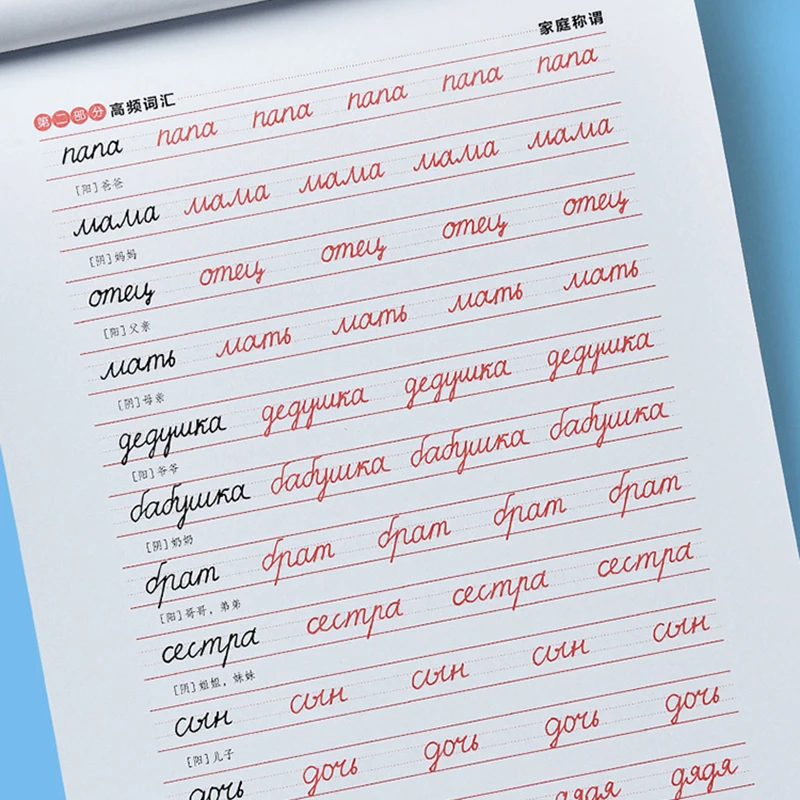 家庭称谓
第二部分 高频词汇
папа папа папа папа папа папа
[阳] 爸爸
мама мама мама мама мама
[阴] 妈妈
отец отец отец отец отец
[阳] 父亲
мать мать мать мать мать
[阴] 母亲
дедушка дедушка дедушка дедушка
[阳] 爷爷
бабушка бабушка бабушка бабушка
[阴] 奶奶
брат брат брат брат брат
[阳] 哥哥，弟弟
сестра сестра сестра сестра
[阴] 姐姐，妹妹
сын сын сын сын сын
[阳] 儿子
дочь дочь дочь дочь дочь
дядя дядя